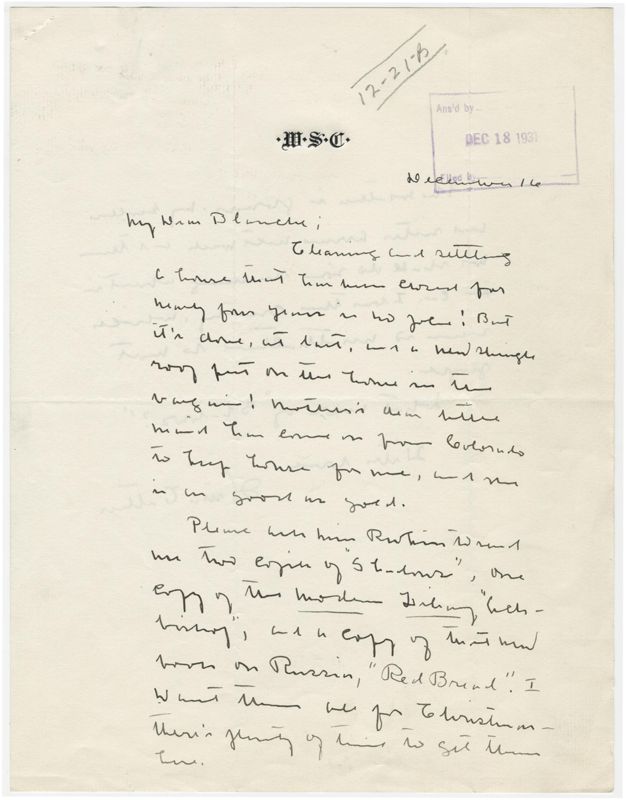 12-21-B
Ans'd by
DEC 18 1931
Filed by
·W·S·C·
December 16
My Dear Blanche;
Cleaning and settling
a house that has been closed for
nearly four years is no joke! But
it's done, at last, and a new shingle
roof put on the house in the
bargain! Mother's dear little
maid has come on from Colorado
to keep house for me, and she
is as good as gold.
Please ask Miss Rubin to send
me two copies of "Shadows", one
copy of the Modern Library "Arch-
bishop", and a copy of that new
book on Russia, "Red Bread". I
want them all for Christmas—
there's plenty of time to get them
here.